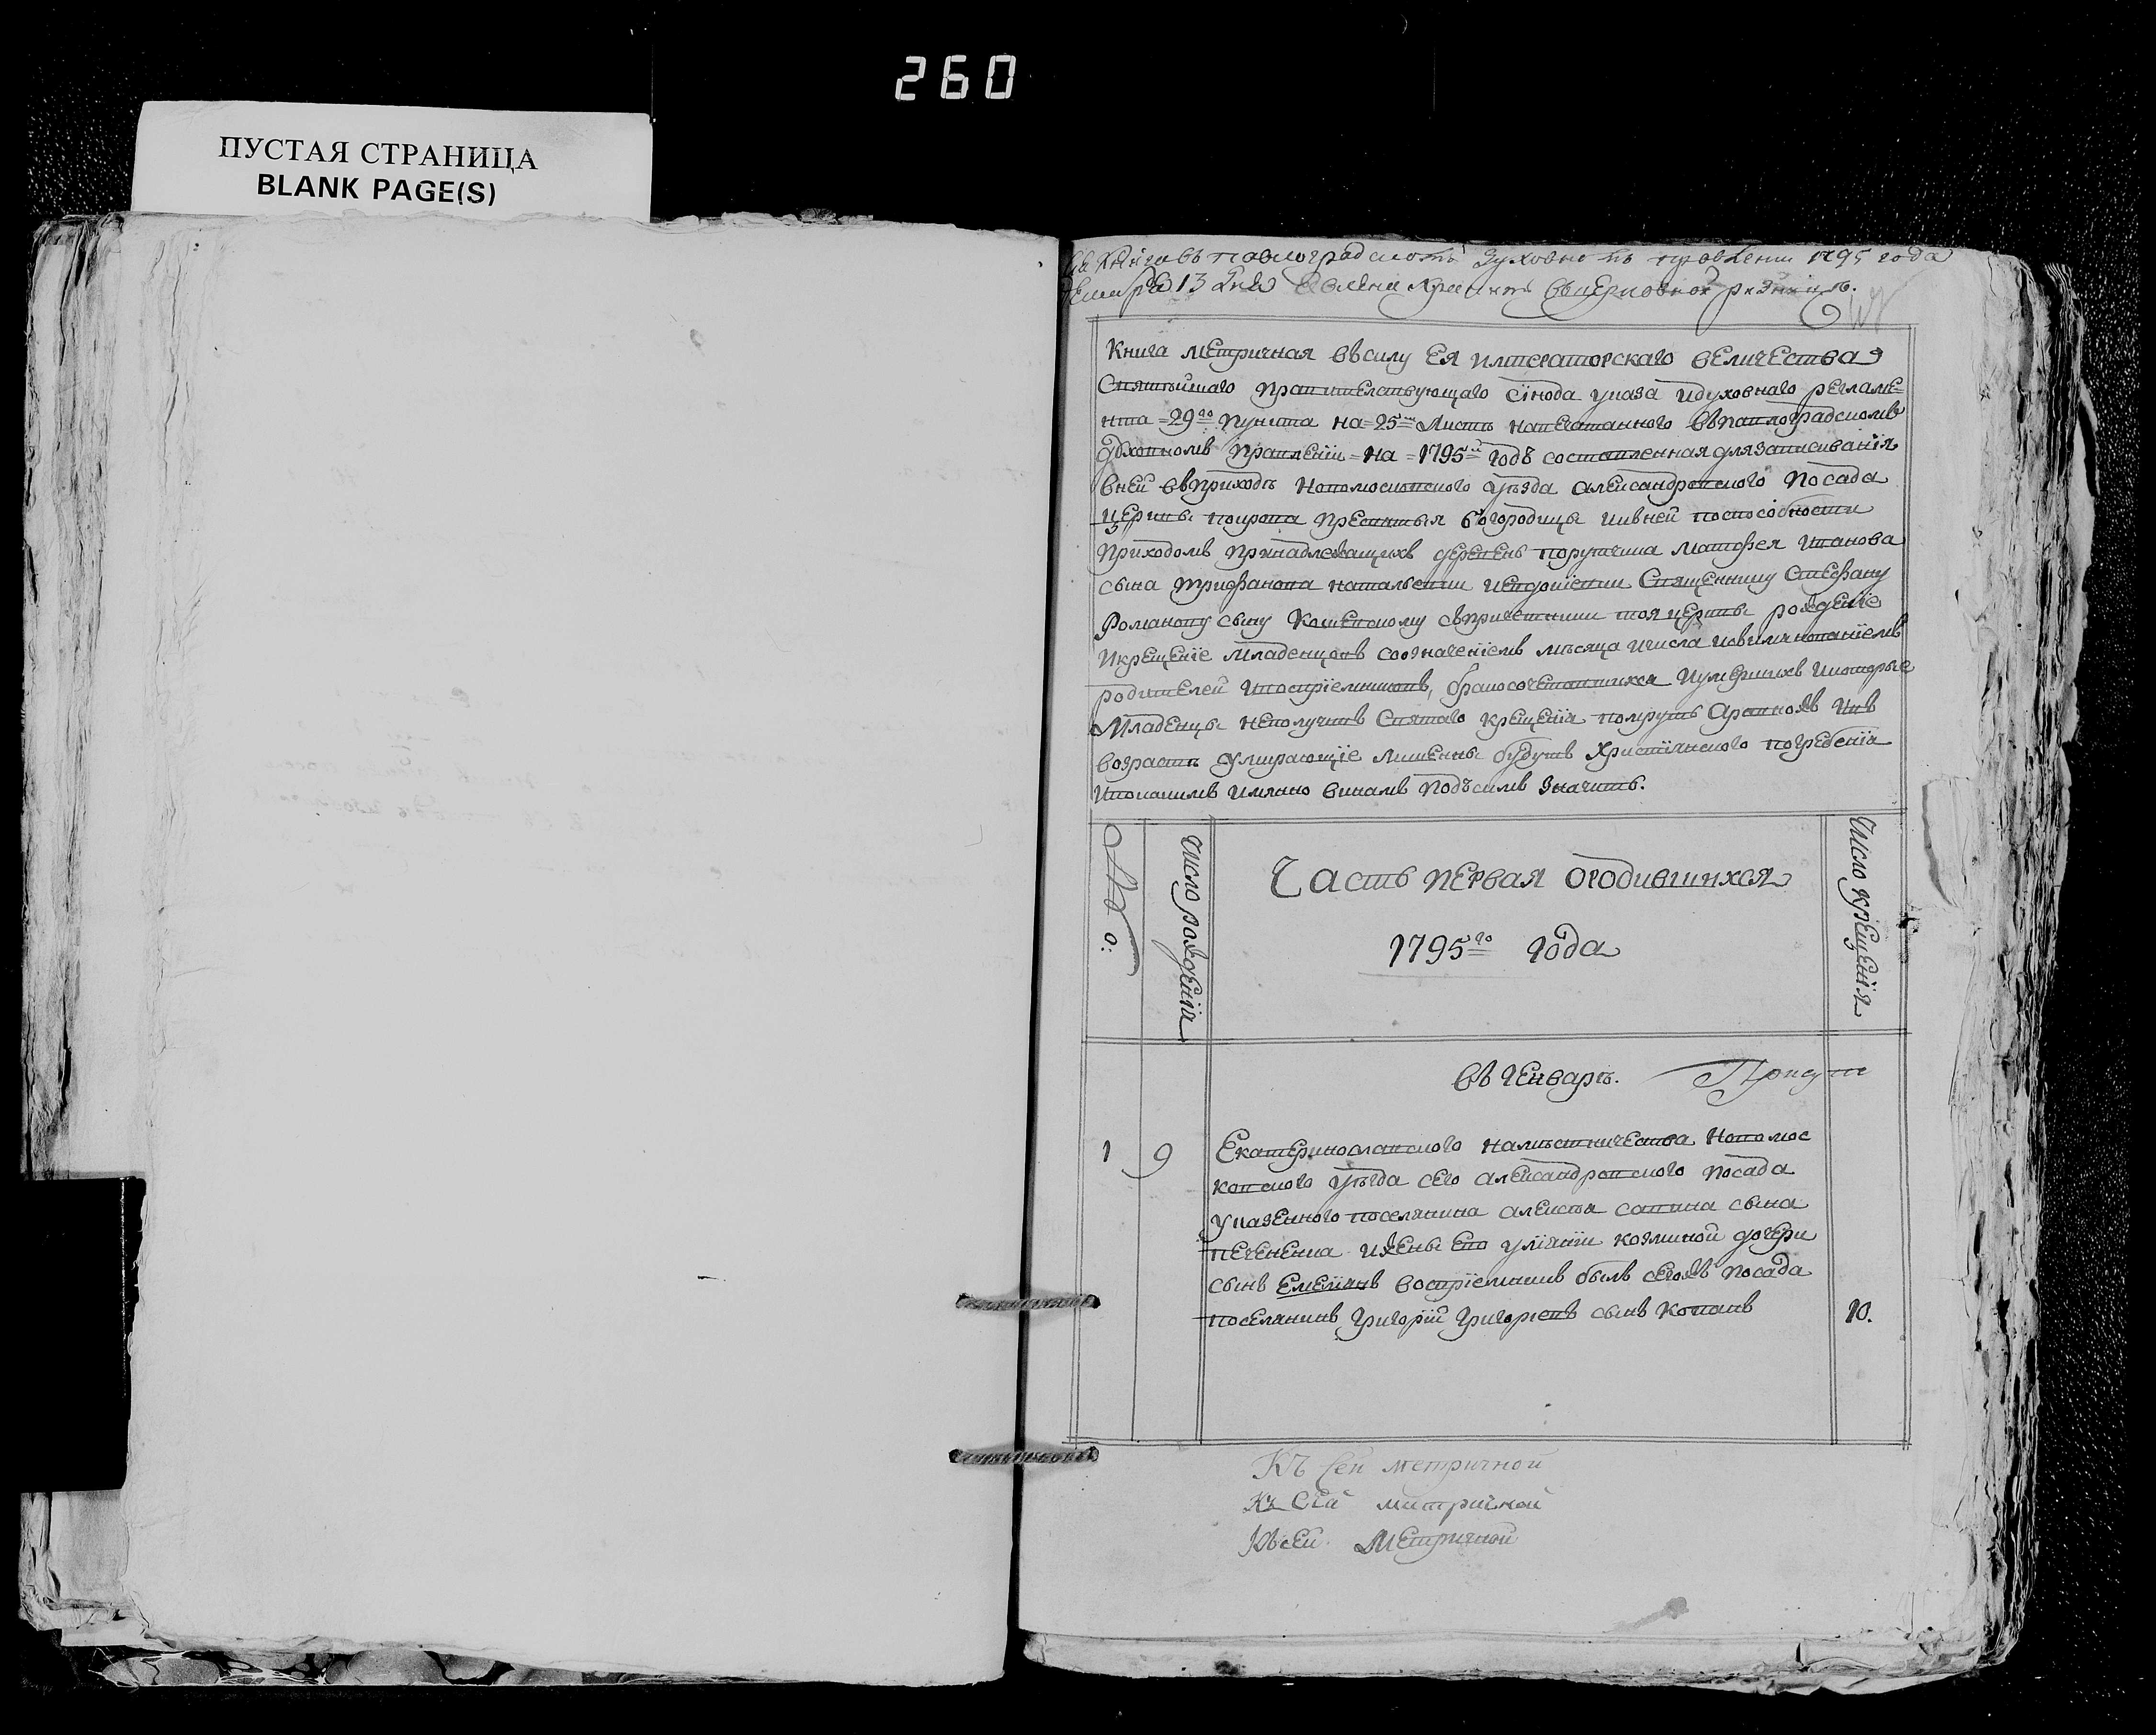 260
ПУСТАЯ СТРАНИЦА
BLANK PAGE(S)
Книга въ павлоградскомъ духовномъ правленіи 1795 года
13 дня явлена хранить въ церковной ризницѣ.
Книга метричная въ силу Ея императорскаго величества
Святѣйшаго правителствующаго сѵнода указа и духовнаго регламе-
нта =29го пункта на =25м листѣ напечатанного въ павлоградскомъ
духовномъ правленіи =на =1795й годъ составленная для записиванія
в ней въ приходѣ Новомосковского уѣзда александровского посада
церкви покрова пресвятыя богородицы и в ней поспособности
приходомъ принадлежащихъ деревень порутчика матфея иванова
сына трифанова натальевки и евдокіевки Священнику Стефану
Романову сыну Кошевскому с причетники тоя церкви рожденіе
и крещеніе младенцовъ со означеніемъ мѣсяца и числа и въимянованіемъ
родителей и воспріемниковъ, бракосочетавшихся и умершихъ и которые
младенцы неполучивъ Святаго крещенія помрутъ а равножъ и въ
возрастѣ умирающіе лишенны будутъ христіянского погребенія
и по какимъ имянно винамъ подъ симъ значитъ.
Число рожденія
Часть первая о родившихся
1795го года
Число крещенія
Въ генварѣ.
1 9 Екатеринославского намѣстничества Новомос
ковского уѣзда сего александровского посада
указенного поселянина алексѣя савина сына
печененка и жены его уліянии козминой дочери
сынъ Емеліянъ воспріемникъ былъ сегожъ посада
поселянинъ григорій григорієвъ сынъ ковалъ 10.
Къ сей метричной
Къ сей митричной
Къ сей метричной